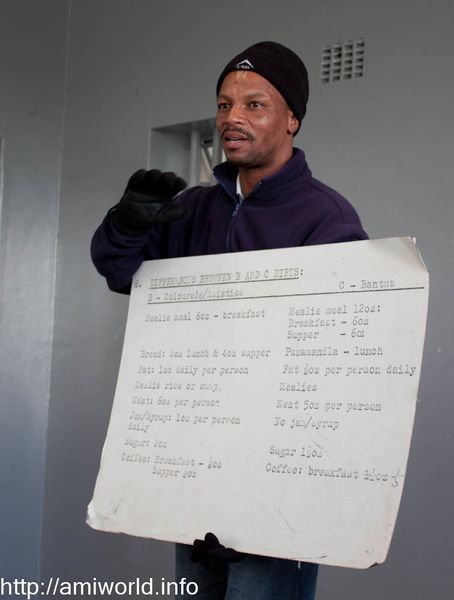 K-WAY
6. DIFFERANCES BETWEEN B AND C DIETS:
B - Coloureds/Asiatics C - Bantus
Mealie meal 6oz - breakfast Mealie meal 12oz:
Breakfast - 6oz
Supper - 6oz
Bread: 4oz lunch & 4oz supper Puzamandla - lunch
Fat: 1oz daily per person Fat ½oz per person daily
Mealie rice or samp. Mealies
Meat: 6oz per person Meat 5oz per person
Jam/Syrup: 1oz per person No jam/syrup
daily
Sugar: 2oz Sugar 1½oz
Coffee: Breakfast - ½oz Coffee: breakfast
Supper ½oz
http://amiworld.info